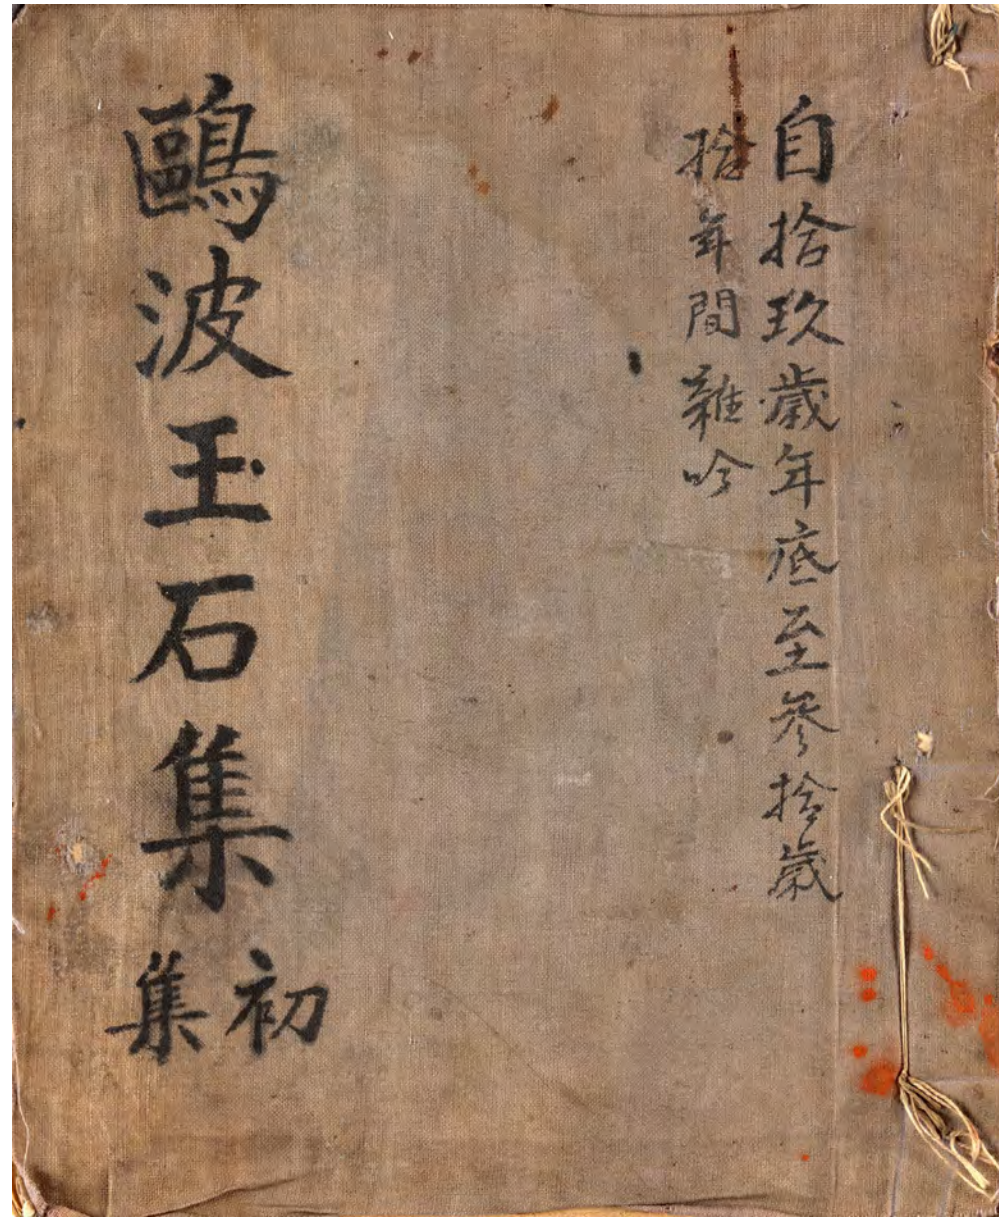 自拾玖歲年底至參拾歲
拾年間雜吟
鷗波玉石集
初集